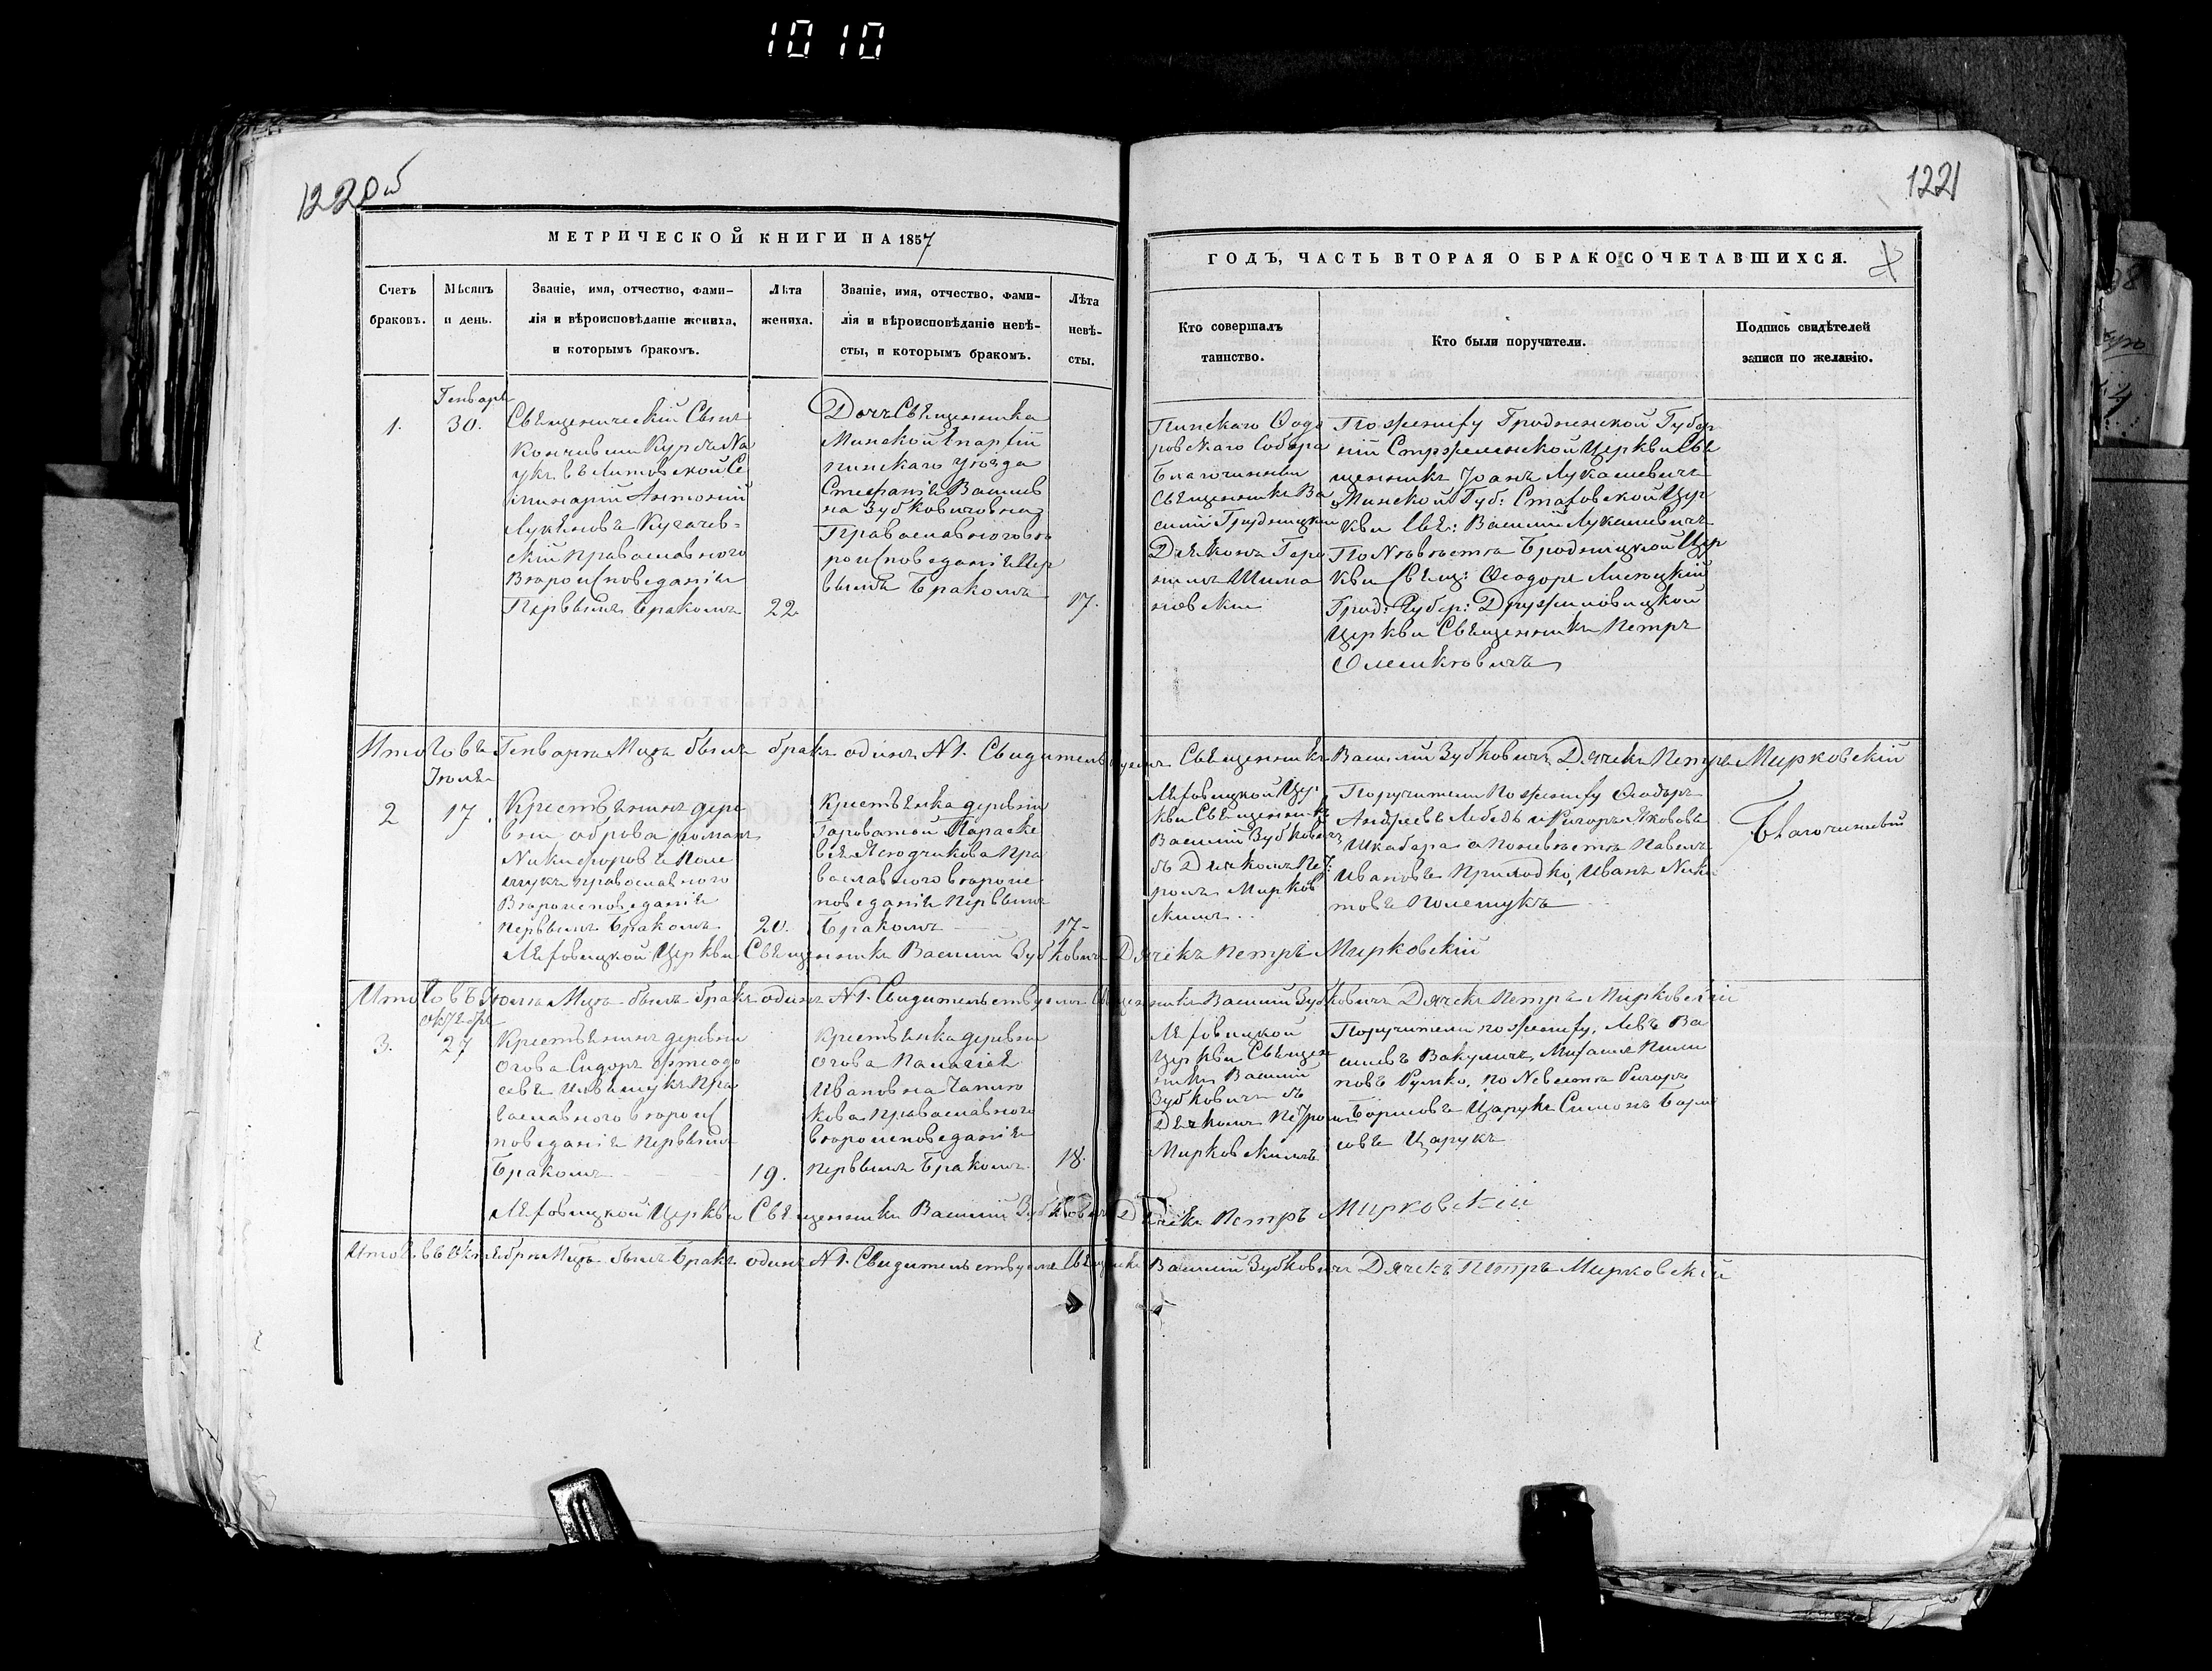 1010
1220об
1221
МЕТРИЧЕСКОЙ КНИГИ НА 1857
ГОДЪ, ЧАСТЬ ВТОРАЯ О БРАКОСОЧЕТАВШИХСЯ.
Счетъ
браковъ.
Мѣсяцъ
и день.
Званіе, имя, отчество, фами-
лія и вѣроисповѣданіе жениха,
и которымъ бракомъ.
Лѣта
жениха.
Званіе, имя, отчество, фами-
лія и вѣроисповѣданіе невѣ-
сты, и которымъ бракомъ.
Лѣта
невѣ-
сты.
Кто совершалъ
таинство.
Кто были поручители.
Подпись свидѣтелей
записи по желанію.
1.
Генваря
30.
Священическій Сынъ
Кончивши Курсъ На
укъ въ Литовской Се
минаріи Антоній
Лукѧновъ
скій православного
Вѣроисповеданія
Первымъ Бракомъ
22
Дочь Священника
Минской Епархіи
пинскаго Уѣзда
Стефанія Василев
на Зубковичовна
Православного вѣ
роисповеданія Пер
вымъ Бракомъ
17.
Пинскаго Ѳеодо
ровскаго Собора
Благочинный
Священникъ Ва
силій Грудницкій
Дьяконъ
новскій
По жениху Гродненской Губер
ніи Церкви Свя
щенникъ Іоанъ Лукашевичъ
Минской Губ: Стаховской Цер
кви Свя: Василій Лукашевичъ
По Невѣстѣ Бродницкой Цер
кви Свящ: Ѳеодоръ
Грод: Губер: Дружиловицкой
Церкви Священникъ Петръ
Итого въ Генварѣ Мцѣ былъ бракъ одинъ N1. Свидительствуемъ Священникъ Василій Зубковичъ Дячекъ Петръ Мирковскій
2
Іюля
17.
Крестьянинъ дере
вни оброва романъ
Никифоровъ Поле
шукъ православного
Вѣроисповеданія
первымъ Бракомъ
20.
Крестьянка деревни
Гороватой Параске
вія Ягодчикова Пра
вославного вѣроис
поведанія Первымъ
Бракомъ
17
Ляховицкой Цер
кви Священникъ
Василій Зубковичъ
съ Дячкомъ Пет
ромъ Мирков
скимъ..
Поручители По жениху Ѳеодоръ
Андреевъ Лебедь и Григоръ Якововъ
Шкабара а По невѣстѣ Павелъ
Ивановъ Приходко, Иванъ Ники
товъ Полешукъ
Благочинный
Ляховицкой Церкви Священникъ Василій Зубковичъ Дячекъ Петръ Мирковскій
Итого въ Іюлѣ Мцѣ былъ бракъ одинъ N1. Свидительствуемъ Священникъ Василій Зубковичъ Дячекъ Петръ Мирковскій
3.
октября
27
Крестьянинъ деревни
Огова Сидоръ
Пра
вославного вѣроис
поведанія первымъ
Бракомъ
19.
Крестьянка деревни
Огова Палагія
Ивановна
кова православного
вѣроисповеданія
первымъ Бракомъ
18.
Ляховицкой
Церкви Священ
никъ Василій
Зубковичъ съ
Дячкомъ Петромъ
Мирковскимъ
Поручители по жениху, Левъ Ва
силевъ Вакуличъ, Михаилъ Пили
повъ Румко, по Невестѣ Григоръ
Борисовъ Царукъ Симонъ Бори
совъ Царукъ
Ляховицкой Церкви Священникъ Василій Зубковичъ Дячекъ Петръ Мирковскій
Итого въ Октябрѣ Мцѣ былъ бракъ одинъ N1. Свидительствуемъ Священникъ Василій Зубковичъ Дячекъ Петръ Мирковскій